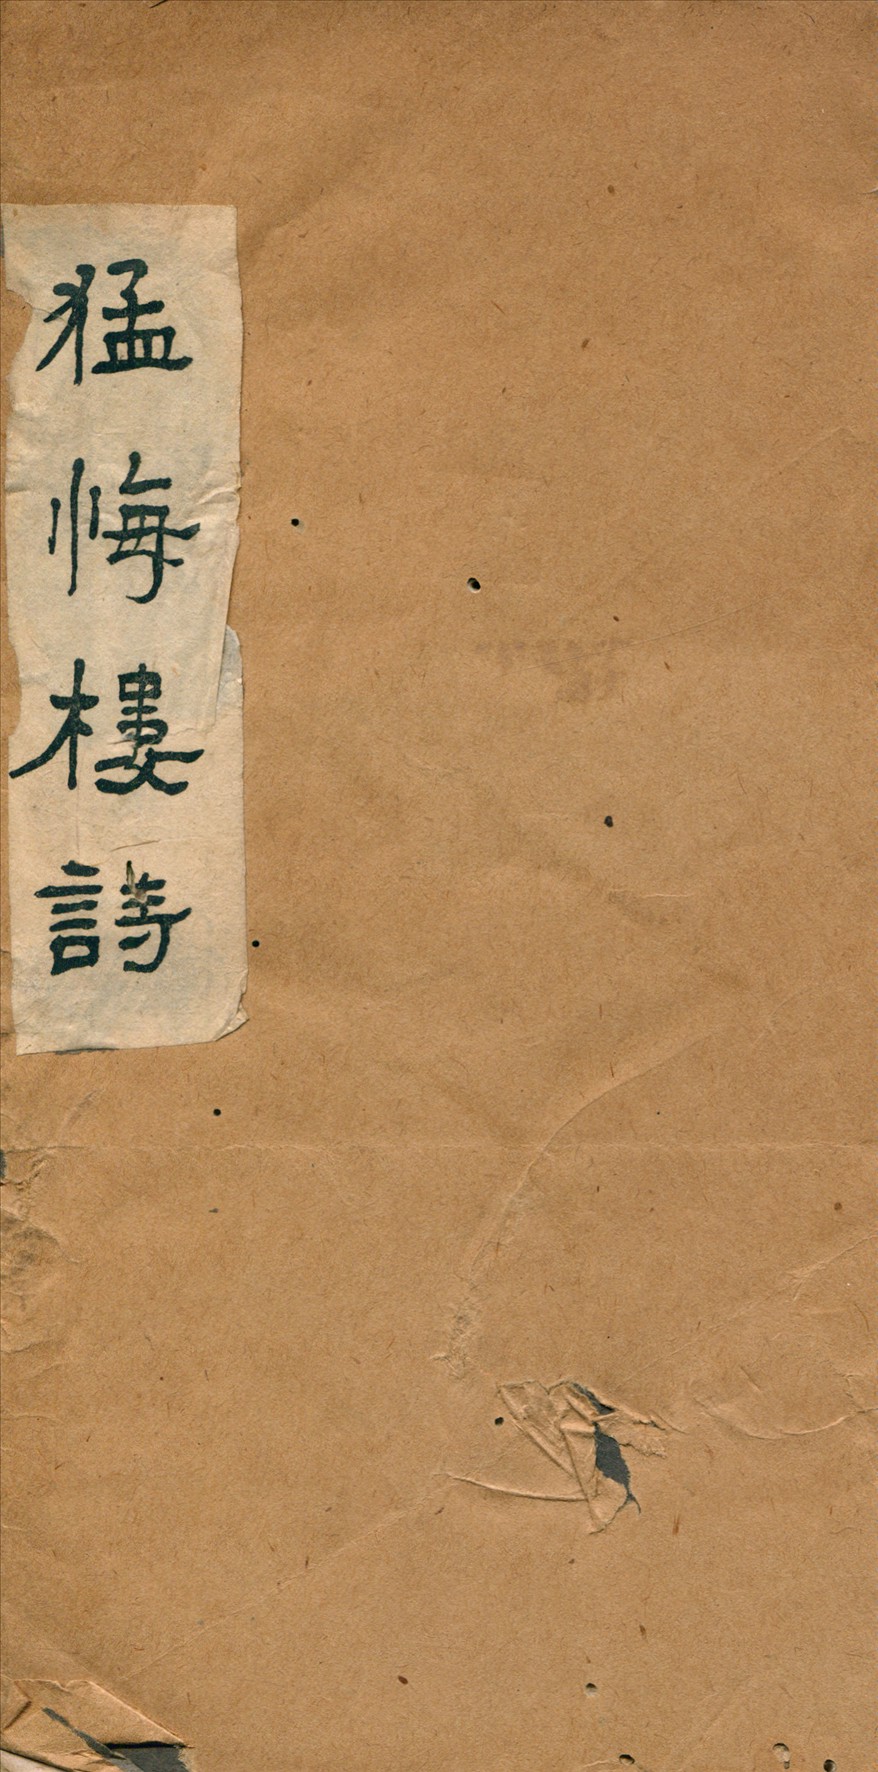 猛悔樓詩